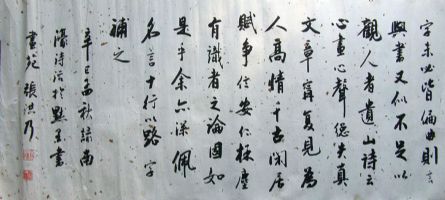 字未必皆偏曲則言
與書又似不足以
觀人者遺山詩云
心畫心聲總失真
文章寧復見為
人高情千古閑居
賦爭信安仁拜塵
有識者之論固如
是乎余亦深佩
名言十行以路字
補之
辛巳秋錄南
濠詩話於書
畫苑張洪